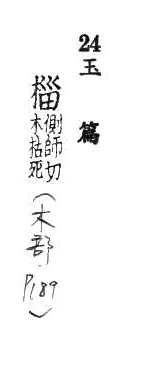 24 玉篇
椔側師切木枯死(木部P189)